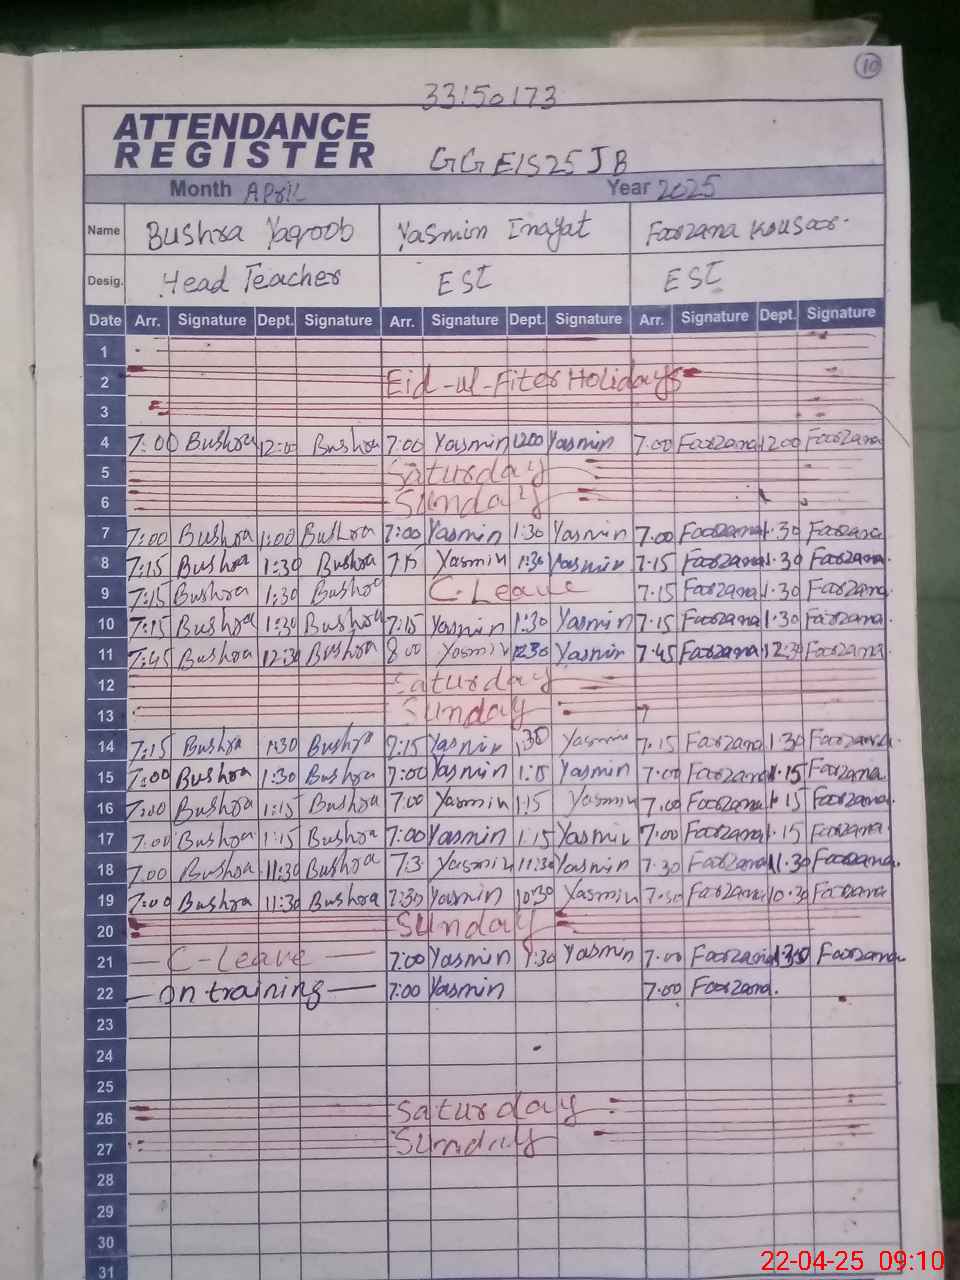 10
33150173
ATTENDANCE
REGISTER
GGEIS25JB
Month April Year 2025
Name Bushra Yaqoob Yasmin Inayat Farzana Kousar
Desig. Head Teacher EST EST
Date Arr. Signature Dept. Signature Arr. Signature Dept. Signature Arr. Signature Dept. Signature
1
2 Eid-ul-Fiter Holidays
3
4 7:00 Bushra 12:00 Bushra 7:00 Yasmin 1200 Yasmin 7.00 Farzana 1200 Farzana
5 Saturday
6 Sunday
7 7:00 Bushra 1:00 Bushra 7:00 Yasmin 1:30 Yasmin 7.00 Farzana 1.30 Farzana
8 7:15 Bushra 1:30 Bushra 715 Yasmin 1:30 Yasmin 7.15 Farzana 1.30 Farzana
9 7:15 Bushra 1:30 Bushra C.Leave 7.15 Farzana 1.30 Farzana
10 7:15 Bushra 1:30 Bushra 7:15 Yasmin 1:30 Yasmin 7.15 Farzana 1.30 Farzana
11 7:45 Bushra 12:30 Bushra 8 00 Yasmin 1230 Yasmin 7.45 Farzana 12.30 Farzana
12 Saturday
13 Sunday
14 7:15 Bushra 1:30 Bushra Yasmin 1:30 Yasmin 7.15 Farzana 1.30 Farzana
15 7:00 Bushra 1:30 Bushra 7:00 Yasmin 1:15 Yasmin 7.00 Farzana 1.15 Farzana
16 7:00 Bushra 1:15 Bushra 7:00 Yasmin 1:15 Yasmin 7.00 Farzana 1.15 Farzana
17 7:00 Bushra 1:15 Bushra 7:00 Yasmin 1:15 Yasmin 7:00 Farzana 1.15 Farzana
18 7:00 Bushra 11:30 Bushra 7:3 Yasmin 11:30 Yasmin 7.30 Farzana 11.30 Farzana
19 7:00 Bushra 11:30 Bushra 7:30 Yasmin 10:30 Yasmin 7.30 Farzana 10.30 Farzana
20 Sunday
21 C-Leave 7:00 Yasmin 1:30 Yasmin 7.00 Farzana 1:30 Farzana
22 on training 7:00 Yasmin 7.00 Farzana.
23
24
25
26 Saturday
27 Sunday
28
29
30
31
22-04-25 09:10